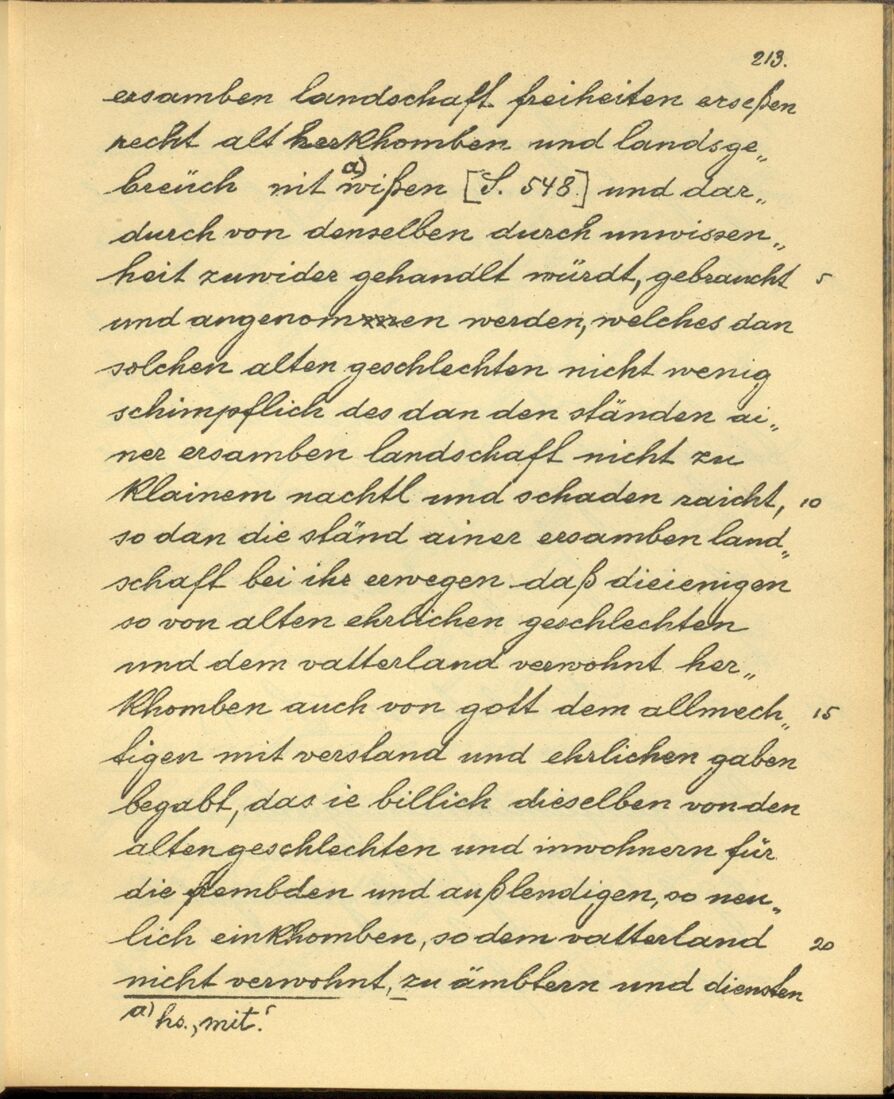 213.
ersamben landschaft freiheiten erseßen
recht alt herkhomben und landsge„
breüch nit a) wißen [S. 548.] und dar„
durch von denselben durch unwissen„
heit zuwider gehandlt würdt, gebraucht 5
und angenommen werden, welches dan
solchen alten geschlechten nicht wenig
schimpflich des dan den ständen ai„
ner ersamben landschaft nicht zu
klainem nachtl und schaden raicht, 10
so dan die ständ ainer ersamben land„
schaft bei ihr erwegen daß dieienigen
so von alten ehrlichen geschlechten
und dem vatterland verwohnt her„
khomben auch von gott dem allmech„ 15
tigen mit verstand und ehrlichen gaben
begabt, das ie billich dieselben von den
alten geschlechten und inwohnern für
die frembden und außlendigen, so neu„
lich einkhomben, so dem vatterland 20
nicht verwohnt, zu ämbtern und diensten
a) hs. „mit“.